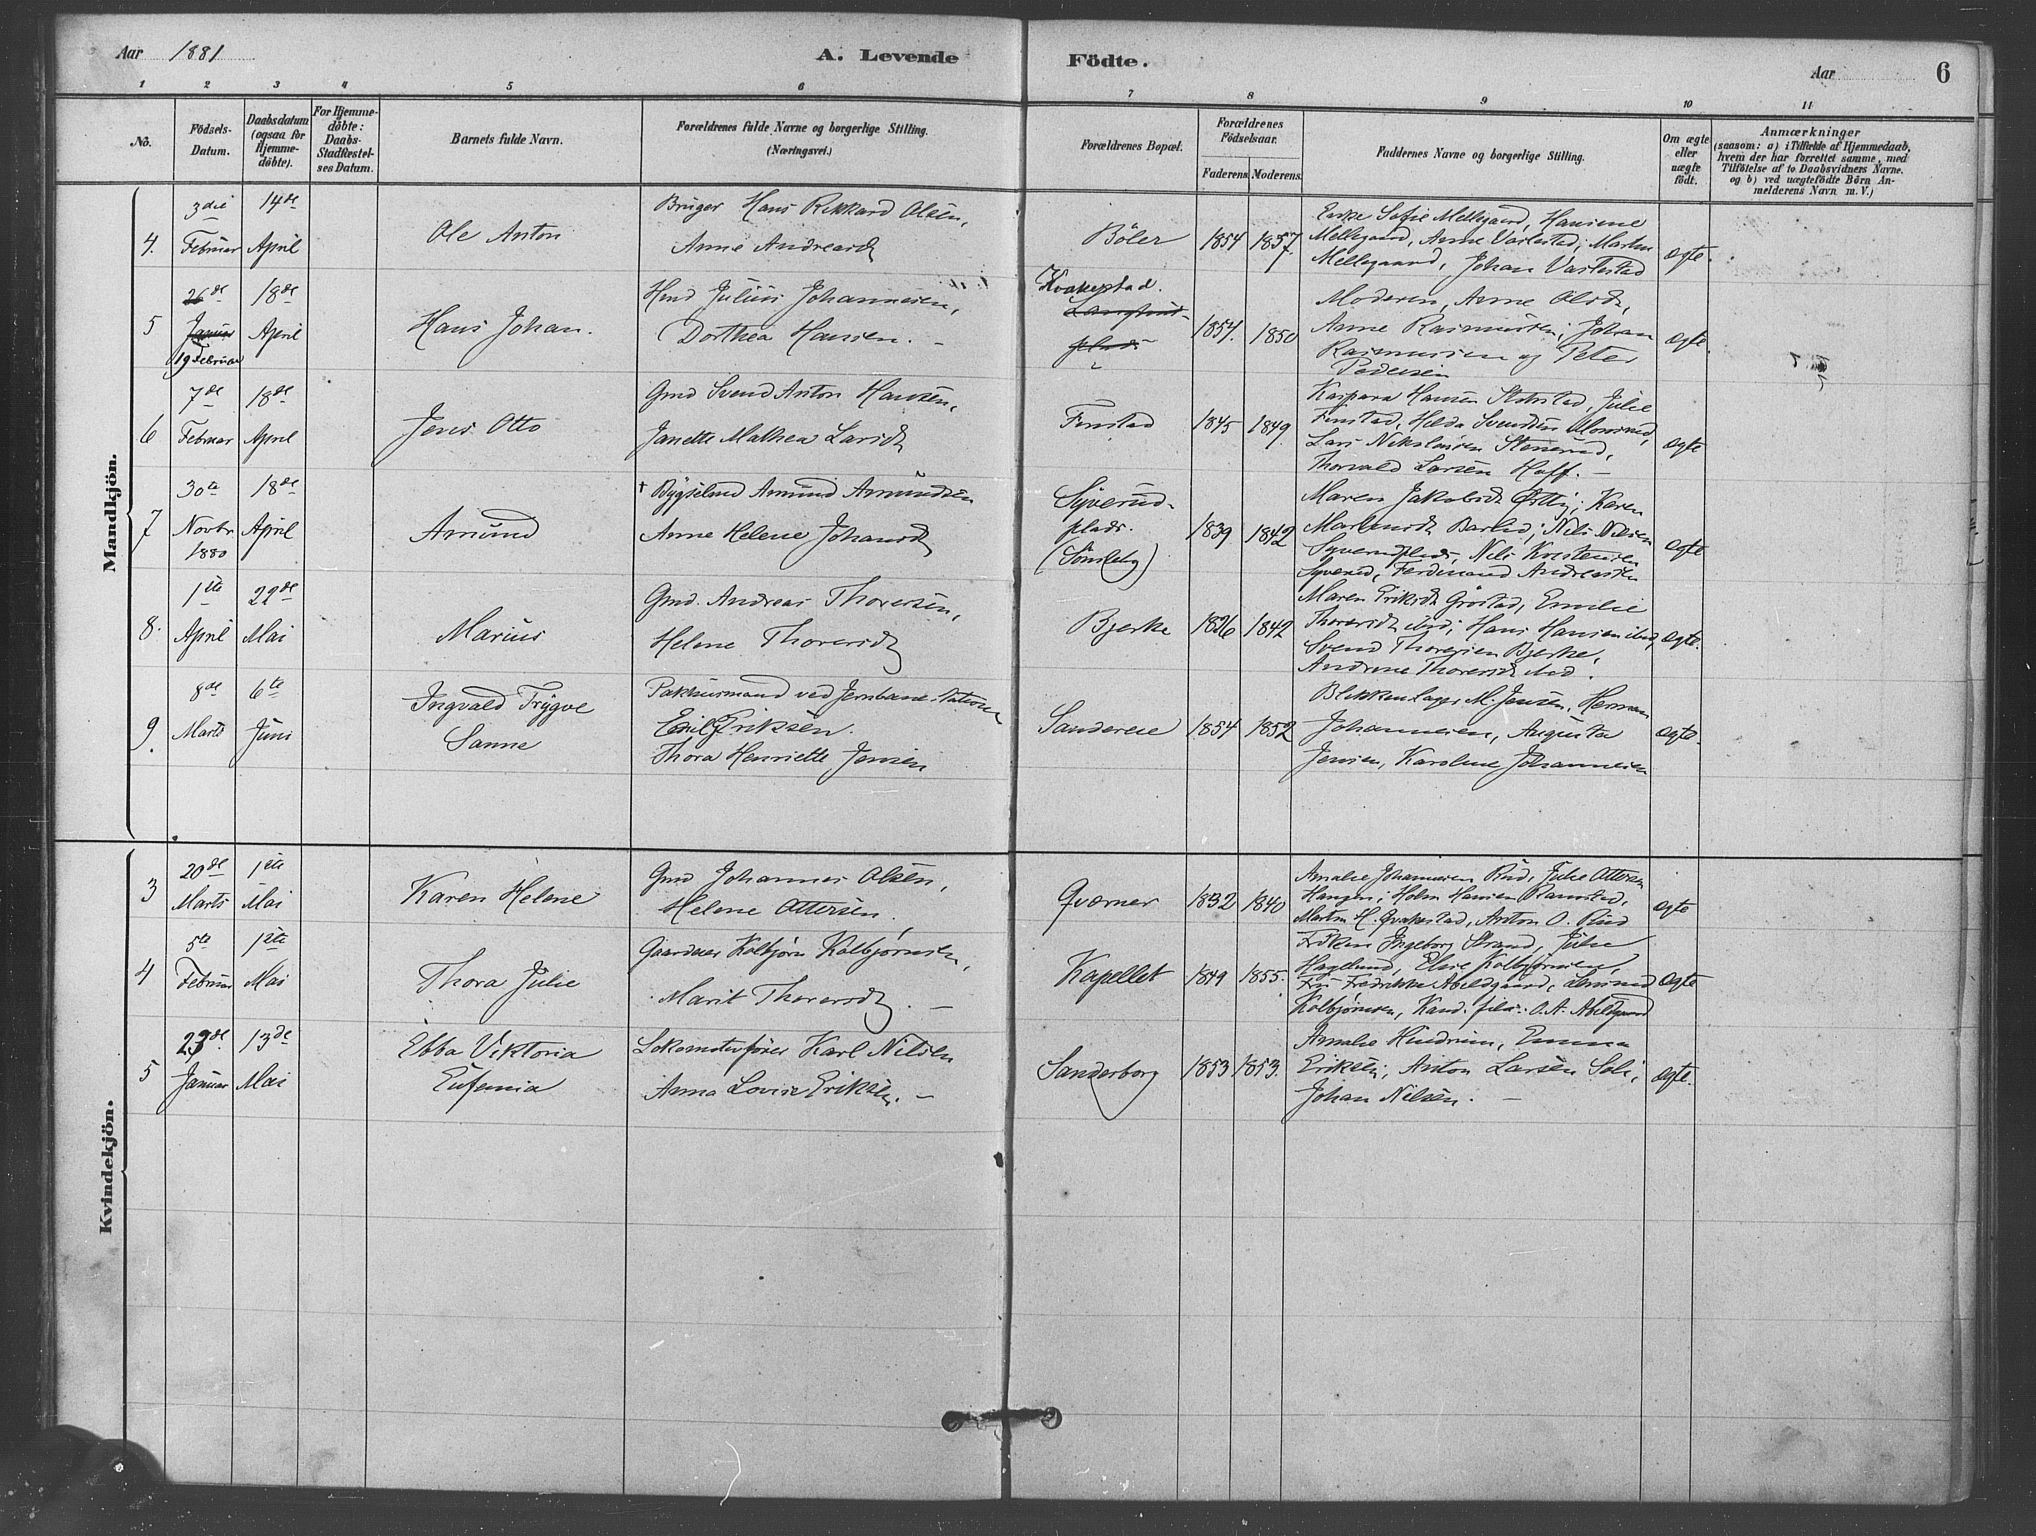 Aar 1881
A. Levende
Födte.
Aar
6
1 2 3 4 5 6 7 8 9 10 11
No.
Födsels-
Datum.
Daabsdatum
(ogsaa for
Hjemme-
döbte).
For Hjemme-
döbte:
Daabs-
Stadfæstel-
ses Datum.
Barnets fulde Navn.
Forældrenes fulde Navne og borgerlige Stilling.
(Næringsvei.)
Forældrenes Bopæl.
Forældrenes
Födselsaar.
Faderens. Moderens.
Faddernes Navne og borgerlige Stilling.
Om ægte
eller
uægte
födt.
Anmærkninger
(saasom: a) i Tilfælde af Hjemmedaab,
hvem der har forrettet samme, med
Tilföielse af to Daabsvidners Navne.
og b) ved uægtefödte Börn An-
melderens Navn m. V.)
Mandkjön.
4.
3die
Februar
14de
April
Ole Anton
Bruger Hans Rikkard Olsen,
Anne Andreasd
Böler
1854
1857.
Enke Sofie Mellegaard, Hansine
Mellegaard, Anne Vastestad, Martin
Mellegaard, Johan Vastestad
ægte.
5
26de
Januar
19 Februar
18de
April
Hans Johan.
Hmd Julius Johannesen,
Dorthea Hansen. –
Kvakestad.
plads
1854.
1850
Moderen, Anne Olsd,
Anne Rasmussen, Johan
Rasmussen og Peter
Pedersen
ægte.
6
7de
Februar
18de
April
Jens Otto
Gmd Svend Anton Hansen,
Janette Mathea Larsd
Finstad
1845
1849.
Kaspara Hansen Stokstad, Julie
Finstad, Helda Svendsen
Lars Nikolaisen Stenerud,
Thorvald Larsen Hoff. –
ægte
7
30te
Novbr
1880
18de
April
Amund
† Bygselmd Amund Amundsen
Anne Helene Johansd
Syverud-
plads.
(Sönsteby)
1839
1842
Maren Jakobsd Östby, Karen
Martinsd Barlid, Nils Nilsen
Syverudplads, Nils Kristensen
Syverud, Ferdinand Andreassen
ægte
8.
1ste
April
22de
Mai
Marius
Gmd. Andreas Thoresen,
Helene Thoresd
Bjerke
1826
1842
Maren Eriksd Gröstad, Emilie
Thoresd ibid, Hans Hansen ibid,
Svend Thoresen Bjerke,
Andrine Thoresd ibid.
ægte.
9.
8de
Marts
6te
Juni
Ingvald Trygve
Sanne
Pakhusmand ved Jernbanestationen
Emil Eriksen.
Thora Henriette Jensen
Sandereie
1854
1852
Blikkenslager M. Jensen, Herman
Johannesen, Augusta
Jensen, Karoline Johannesen
ægte.
Kvindekjön.
3
20de
Marts
1ste
Mai
Karen Helene
Gmd Johannes Olsen,
Helene Ottersen.
Qværner
1832
1840
Amalie Johannesen Rud, Julie Ottersen
Haugen, Holm Hansen Ramstad,
Martin H. Qvakestad, Anton O. Rud
ægte
4
5te
Februar
1ste
Mai
Thora Julie
Gaardeier Kolbjørn Kolbjørnsen,
Marit Thoresd –
Kapellet
1849
1855.
Frøken Ingeborg Strand, Julie
Hagelund, Elise Kolbjørnsen,
Fru Fredrikke Abildgaard,
Kolbjørnsen, Kand. filos. O. A. Abildgaard
ægte
5
23de
Januar
13de
Mai
Ebba Viktoria
Eufemia
Lokomotivfører Karl Nilsen
Anna Lovise Eriksen. –
Sanderborg
1853
1853.
Amalie Hindrum, Emma
Eriksen, Anton Larsen Soli,
Johan Nilsen. –
ægte.